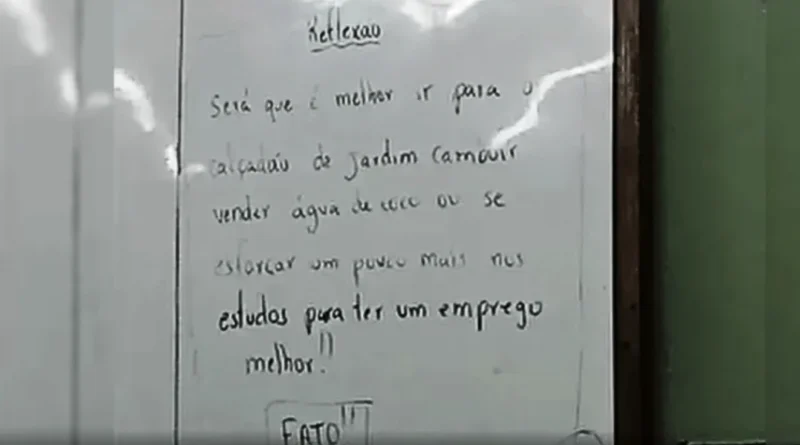 Reflexão
Será que é melhor ir para o
calçadão de Jardim Camburi
vender água de coco ou se
esforçar um pouco mais nos
estudos para ter um emprego
melhor!!
FATO!!